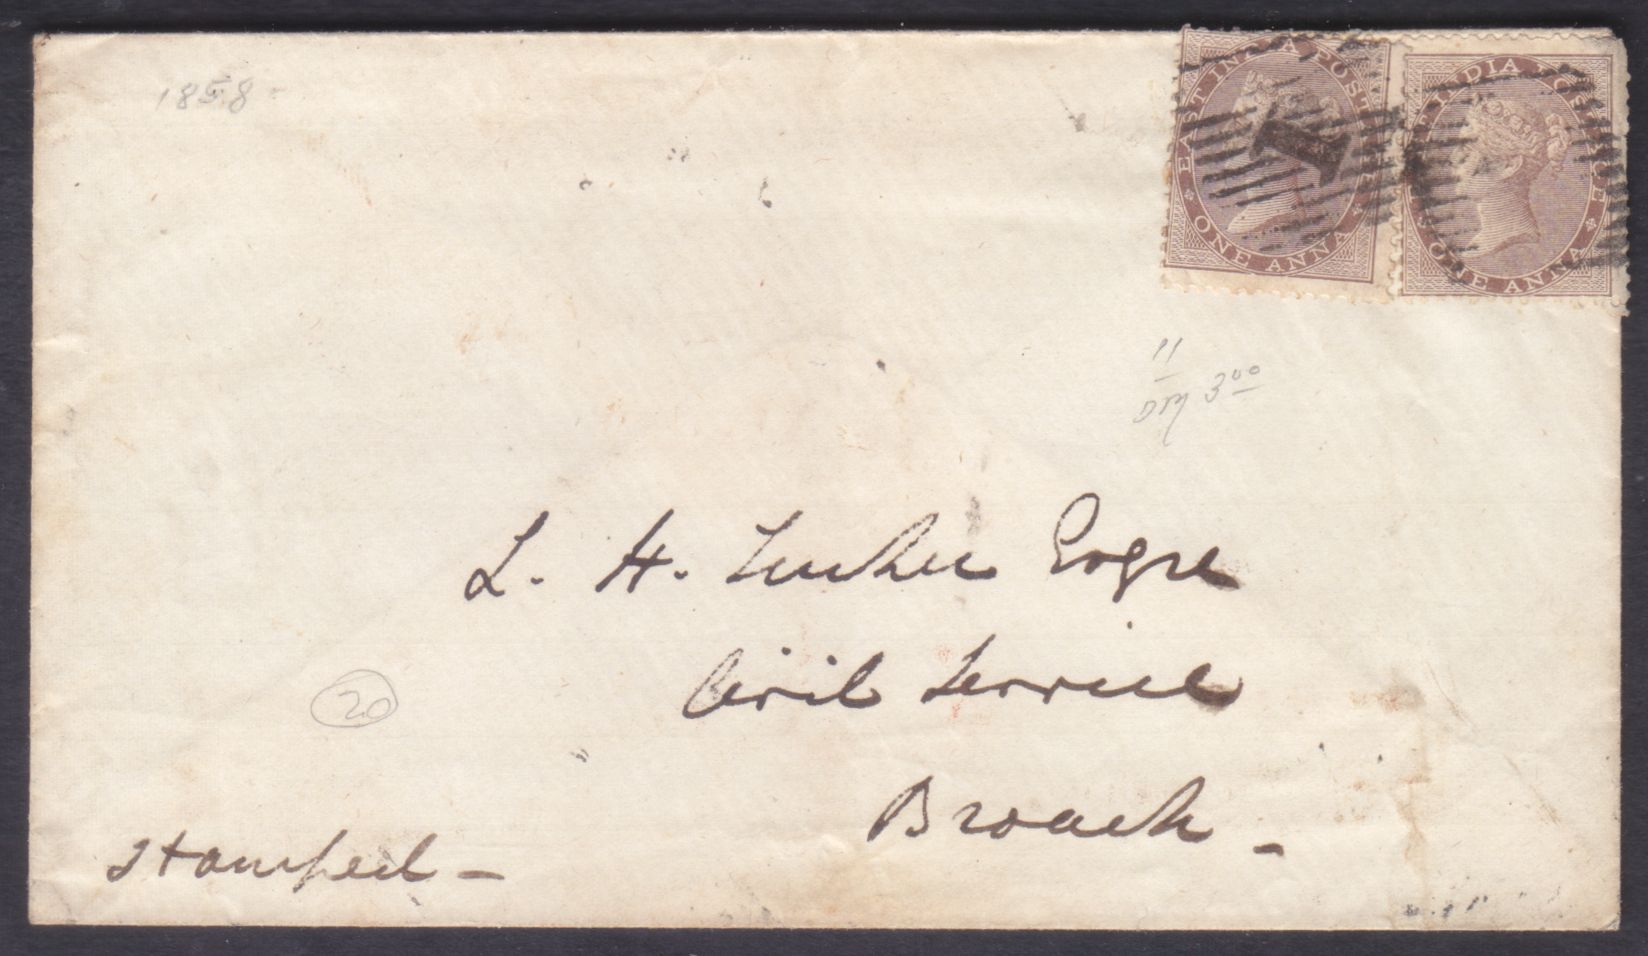 1858
EAST INDIA POSTAGE
ONE ANNA
INDIA POSTAGE
ONE ANNA
1
11
3 00
L. H. Tucker Esqre
Civil Service
Broach -
20
Stamped -